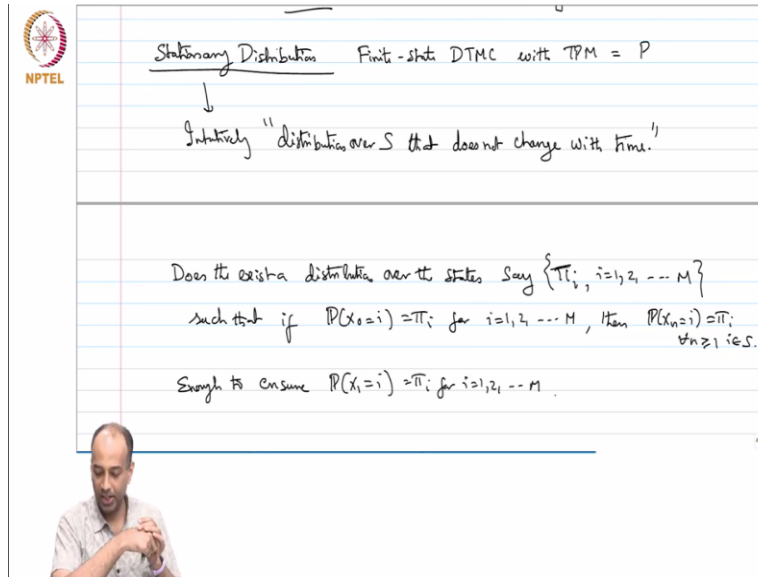 NPTEL
Stationary Distribution Finite-state DTMC with TPM = P
Intuitively "distribution over S that does not change with time."
Does the exist a distribution over the states Say {πi, i=1,2, --- M}
such that if P(X0=i) = πi for i=1,2 --- M, then P(Xn=i) = πi
∀n≥1 i∈S.
Enough to ensure P(X1=i) = πi for i=1,2, -- M.